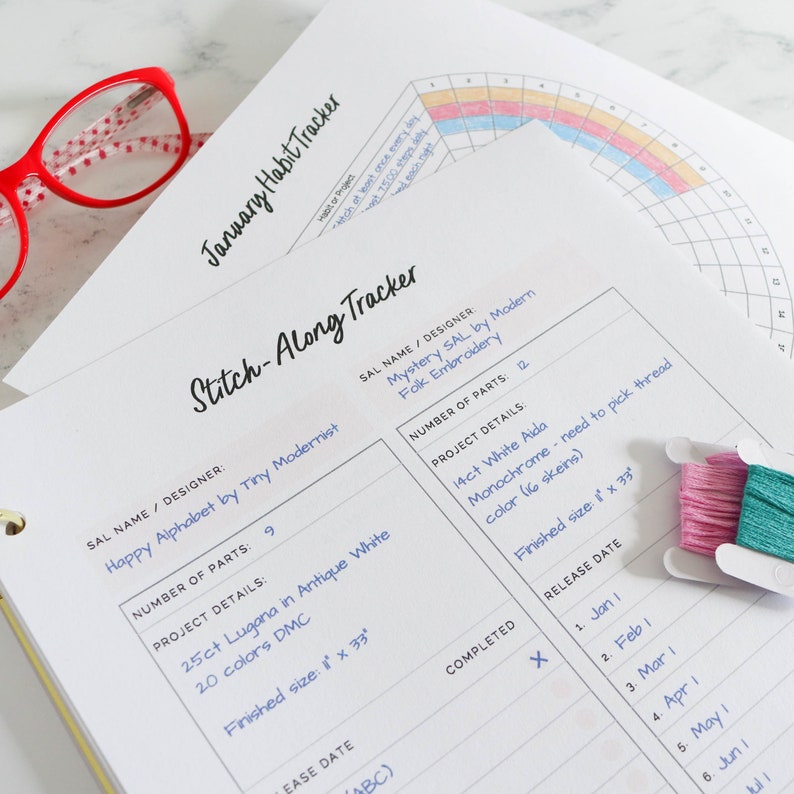 January Habit Tracker
Habit or Project
Stitch at least once every day
7,500 steps daily
each night
1 2 3 4 5 6 7 8 9 10 11 12 13 14 15
Stitch-Along Tracker
SAL NAME / DESIGNER:
Happy Alphabet by Tiny Modernist
NUMBER OF PARTS: 9
PROJECT DETAILS:
25ct Lugana in Antique White
20 colors DMC
Finished size: 11" x 33"
COMPLETED
X
RELEASE DATE
(ABC)
SAL NAME / DESIGNER:
Mystery SAL by Modern
Folk Embroidery
NUMBER OF PARTS: 12
PROJECT DETAILS:
14ct White Aida
Monochrome - need to pick thread
color (16 skeins)
Finished size: 11" x 33"
RELEASE DATE
1. Jan 1
2. Feb 1
3. Mar 1
4. Apr 1
5. May 1
6. Jun 1
Jul 1